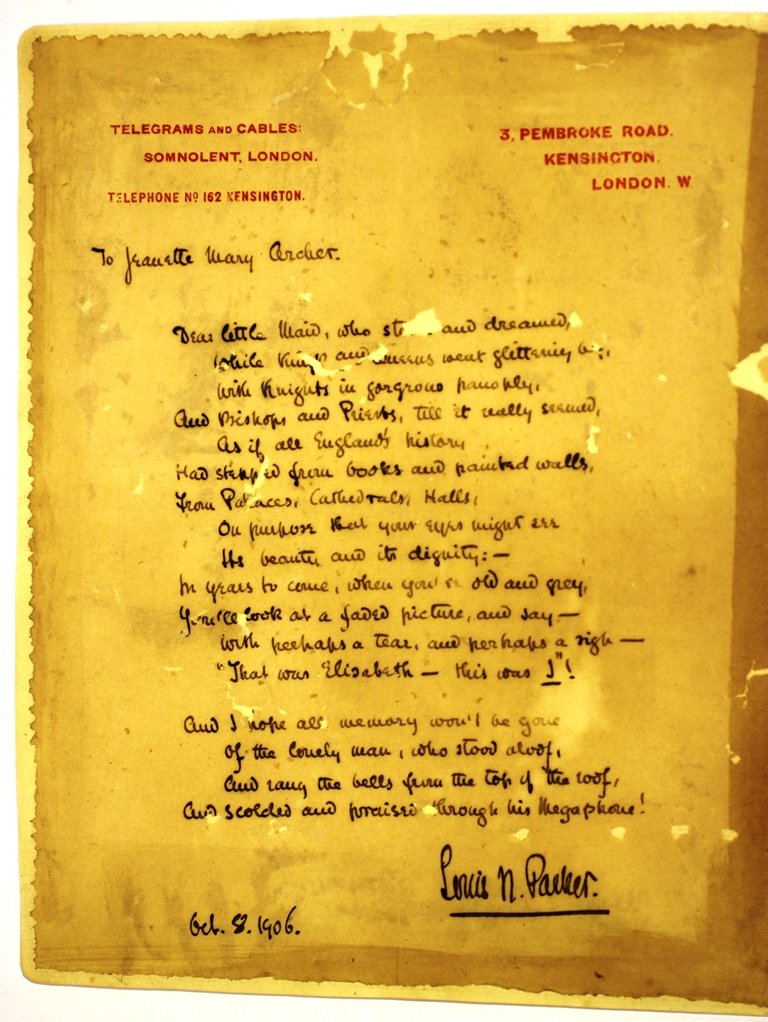 TELEGRAMS AND CABLES:
SOMNOLENT, LONDON.
TELEPHONE Nº 162 KENSINGTON.
3, PEMBROKE ROAD.
KENSINGTON.
LONDON. W
To Jeanette Mary Archer.
Dear little Maid, who and dreamed,
While Kings and Queens went glittering by,
With Knights in gorgeous panoply,
And Bishops and Priests, till it really seemed,
As if all England's history
Had stepped from books and painted walls,
From Palaces, Cathedrals, Halls,
On purpose that your eyes might see
Its beauty and its dignity:—
In years to come, when you're old and grey,
You'll look at a faded picture, and say—
With perhaps a tear, and perhaps a sigh—
"That was Elisabeth — this was I"!
And I hope all memory won't be gone
Of the lonely man, who stood aloof,
And rang the bells from the top of the roof,
And scolded and praised through his Megaphone!
Louis N. Parker.
Oct. 8. 1906.